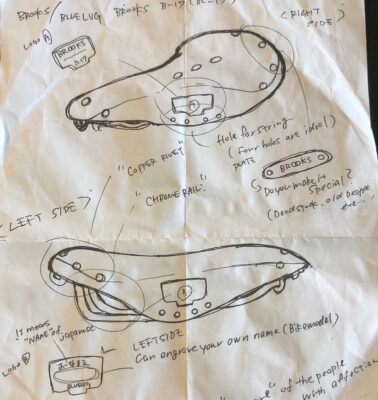 BROOKS / BLUE LUG BROOKS B-17 (BL-17)
LOGO A
BROOKS
B-17
(RIGHT
SIDE)
A
Hole for string
(Four holes are ideal)
"COPPER RIVET"
PLATE
BROOKS
"CHROME RAIL"
Do you make it
special?
(Deadstock, old
etc...)
LEFT SIDE
B
It means
"NAME" of Japanese
LOGO B
LEFT SIDE
Can engrave your own name (Bikemodel)
of the people
with affection